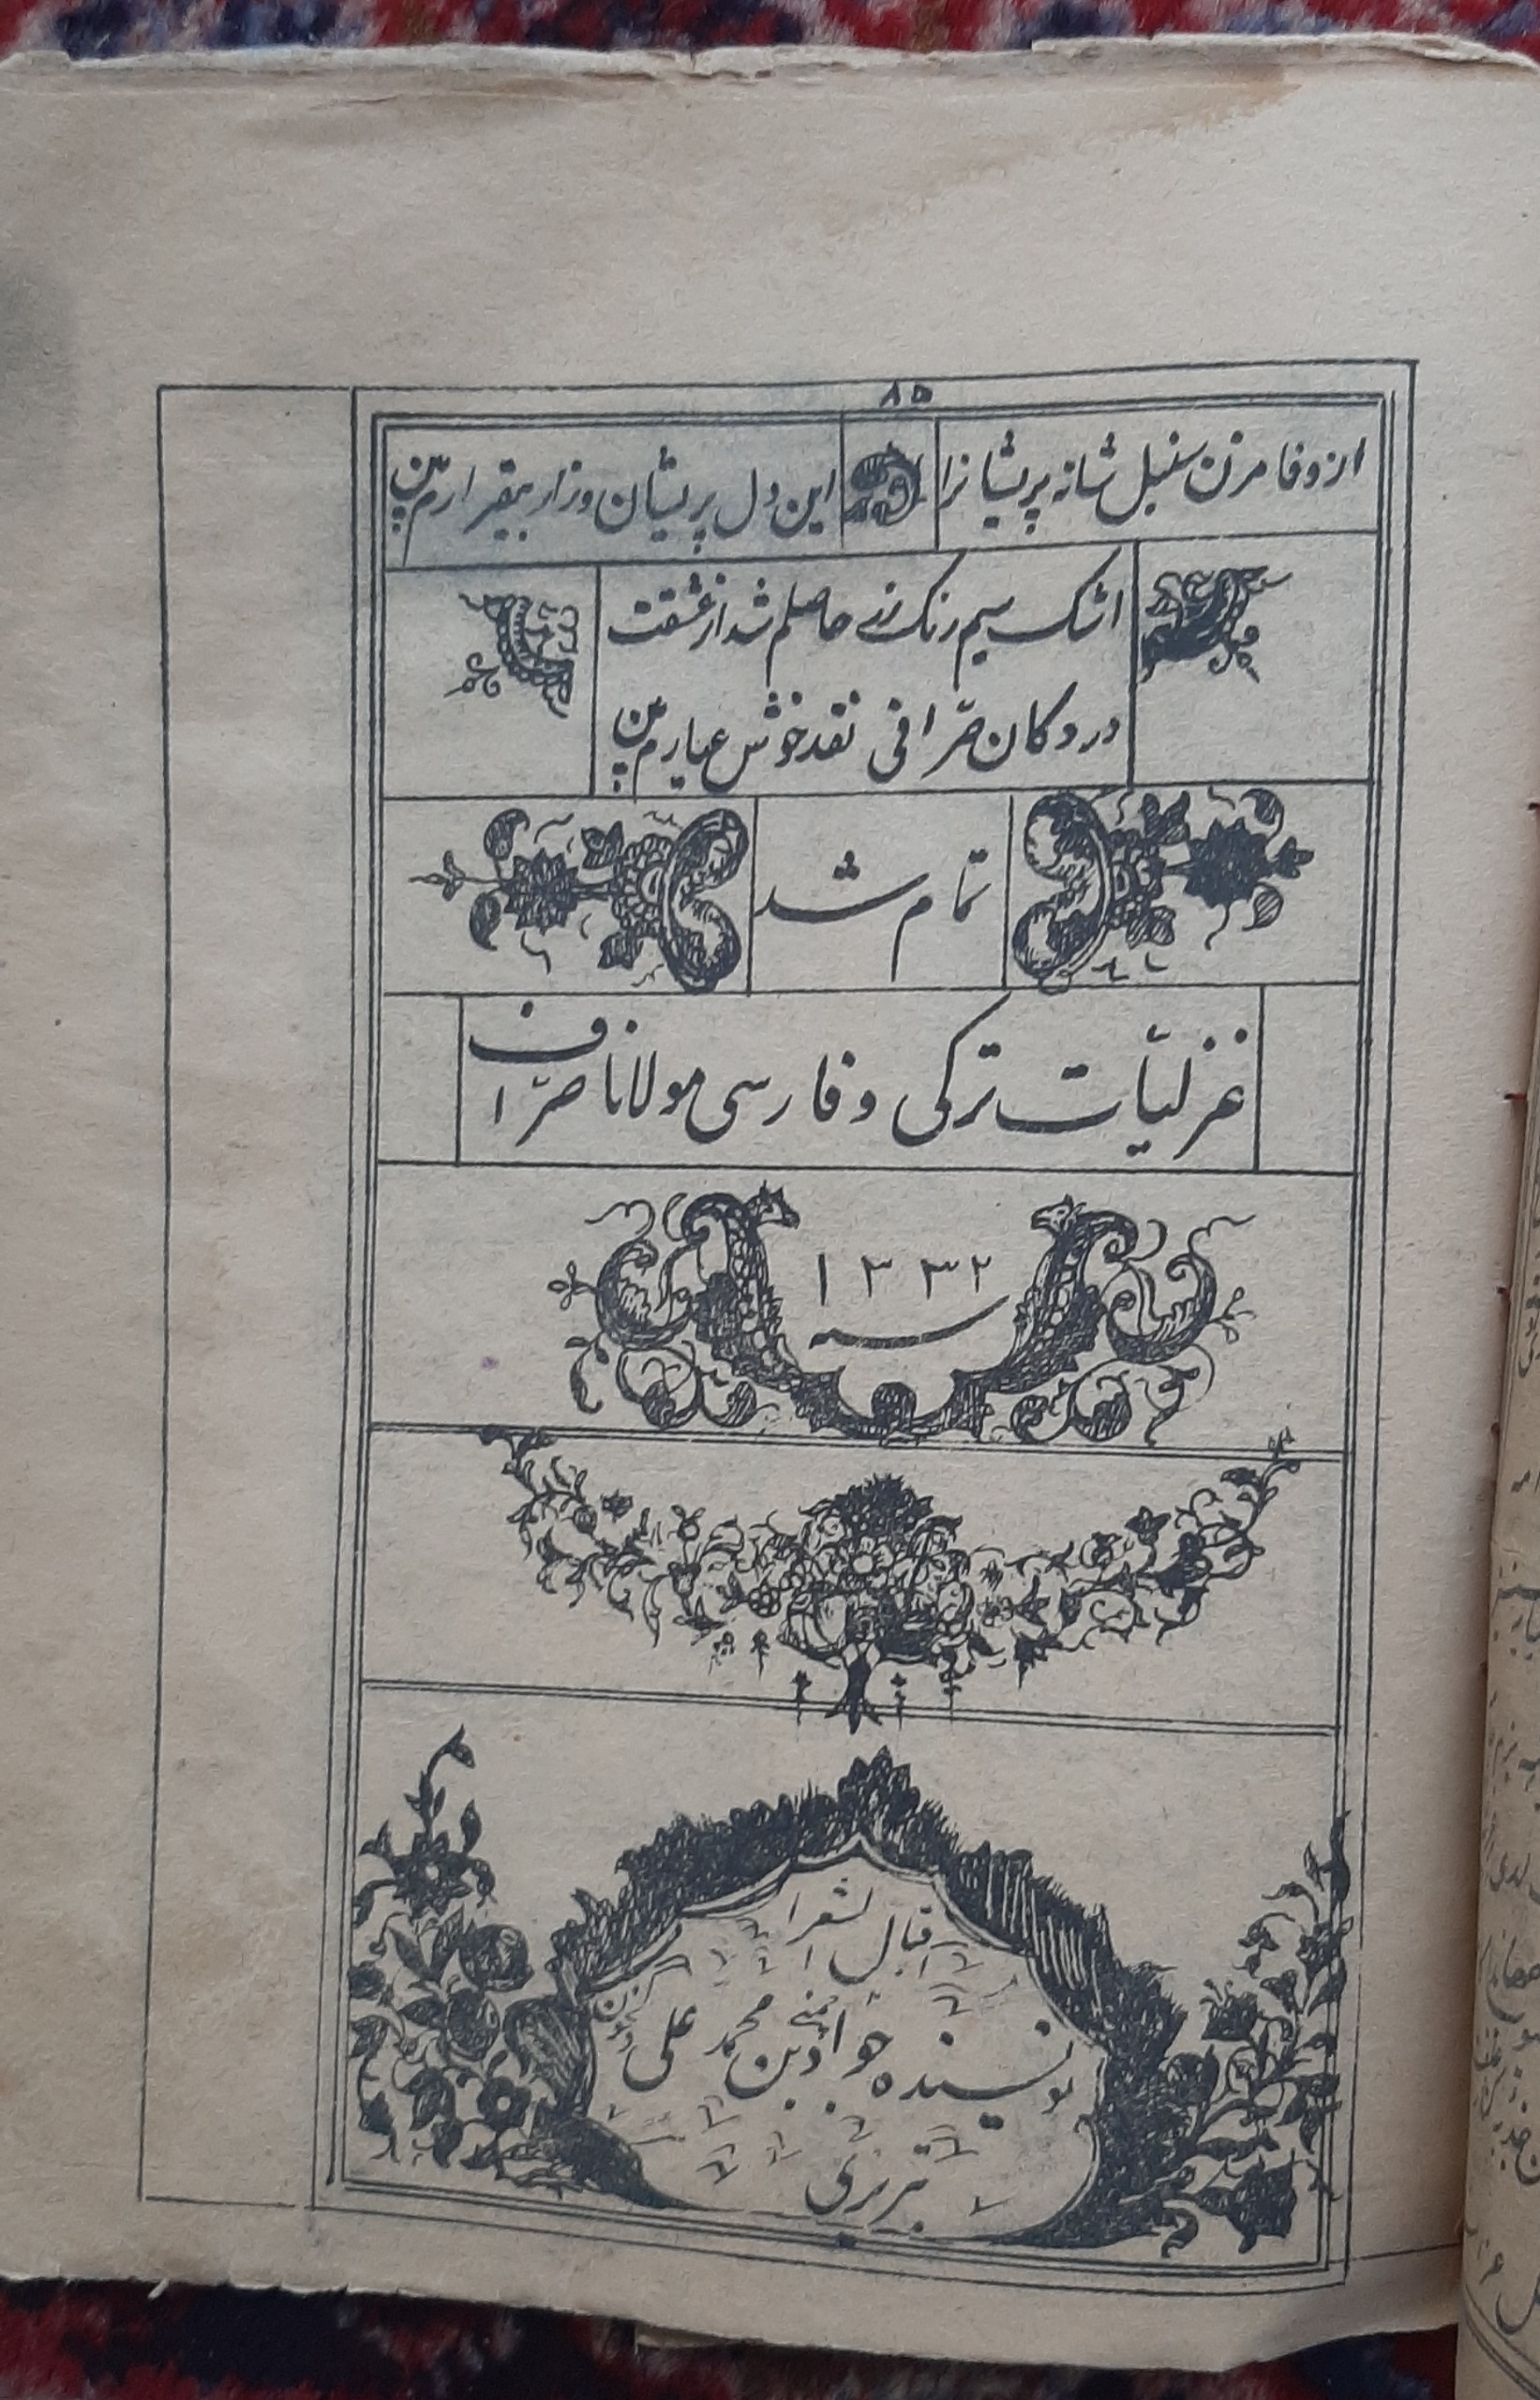 ۸۵
از وفا مزن سنبل شانه پریشانرا
این دل پریشان وزار بیقرارم بین
اشک سیم رنک زر حاصلم شد از عشقت
در دکان صرّافی نقد خوش عیارم بین
تمام شد
غزلیّات ترکی و فارسی مولانا صرّاف
۱۳۳۲
سنه
اقبال الشعرا
نویسنده جواد بن محمد علی
تبریزی